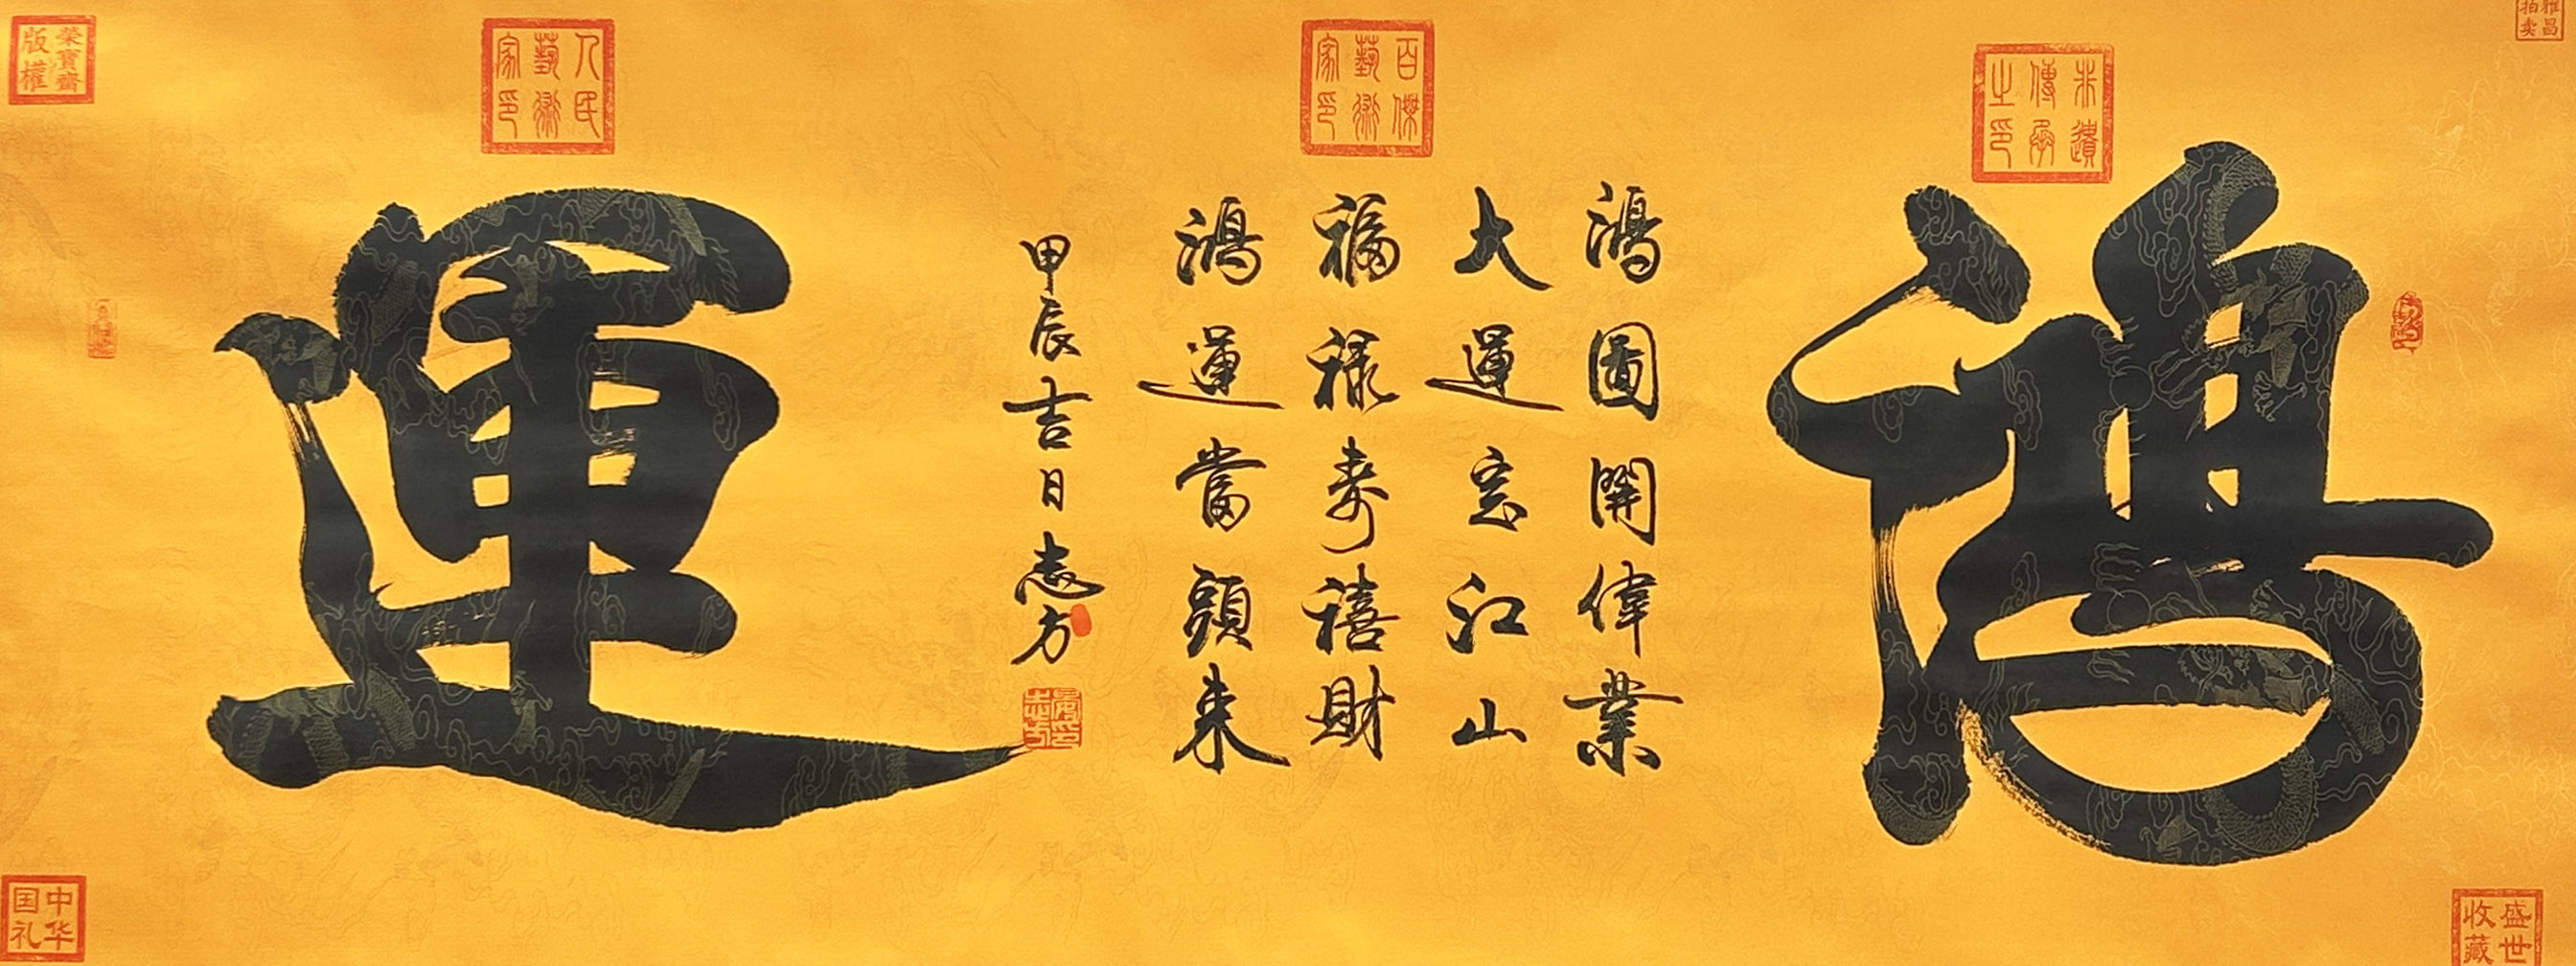 雅昌拍卖
非遺傳承之印
鴻
盛世收藏
百傑藝術家印
鴻圖開偉業
大運定江山
福禄壽禧財
鴻運當頭來
甲辰吉日志方
人民藝術家印
運
榮寶齋版權
中华国礼